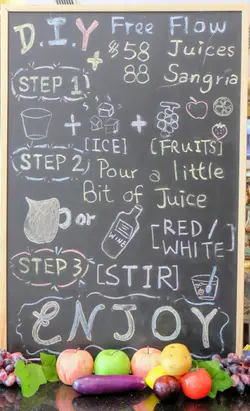 D.I.Y Free Flow
$58 Juices
88 Sangria
STEP 1
+ +
[ICE] [FRUITS]
STEP 2 Pour a little
Bit of Juice
or WINE [RED/
WHITE]
STEP 3 [STIR]
ENJOY